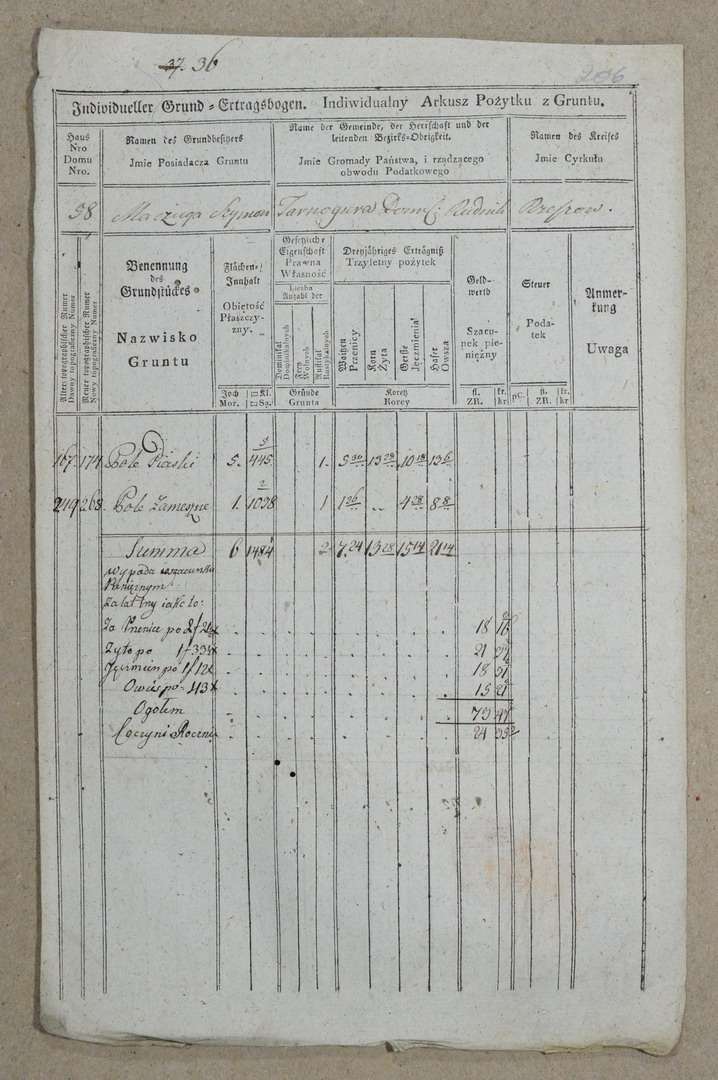 37. 36
206
Individueller Grund-Ertragsbogen. Indiwidualny Arkusz Pożytku z Gruntu.
Haus Nro Domu Nro.
Namen des Grundbesitzers
Jmie Posiadacza Gruntu
Name der Gemeinde, der Herrschaft und der
leitenden Bezirks-Obrigkeit.
Jmie Gromady Państwa, i rządzącego
obwodu Podatkowego
Namen des Kreises
Jmie Cyrkułu
58 Maczuga Szymon Tarnogura Rudnik Rzeszow.
Alter topographischer Numer
Dawny topograficzny Numer
Neuer topographischer Numer
Nowy topograficzny Numer
Benennung
des
Grundstückes
Nazwisko
Gruntu
Flächen-
Innhalt
Obiętość
Płaszczy-
zny.
Joch Mor.
□ Kl. □ Są.
Gesetzliche
Eigenschaft
Prawna
Własność
Liczba
Anzahl der
Dominikal
Dominikalnych
Frey
Wolnych
Rustikal
Rustykalnych
Gründe
Grunta
Dreyjähriges Erträgniß
Trzyletny pożytek
Waitzen
Przenicy
Korn
Żyta
Gerste
Jęczmienia
Hafer
Owsa
Koretz
Korcy
Geld-
werth
Szacu-
nek pie-
niężny
fl. ZR.
kr. kr
Steuer
Poda-
tek
pC.
fl. ZR.
kr. kr
Anmer-
kung
Uwaga
167. 174 Pole Piaski 5. 445 1. 5 30 13 28 10 18 13 6
249 268. Pole 1. 1038 1 1 26 " 4 28 8 8
Summa 6 1484 2 7 24 13 28 15 14 21 14
wypada
Pieniężnym
iako to:
Za Pnenice po 2f 18 16
Zyto po 1f 33 21
Jęczmien po 1f 12 18 51
Owies po 43 15 21
Ogołem 73 47
Czyni Roczni 24 35